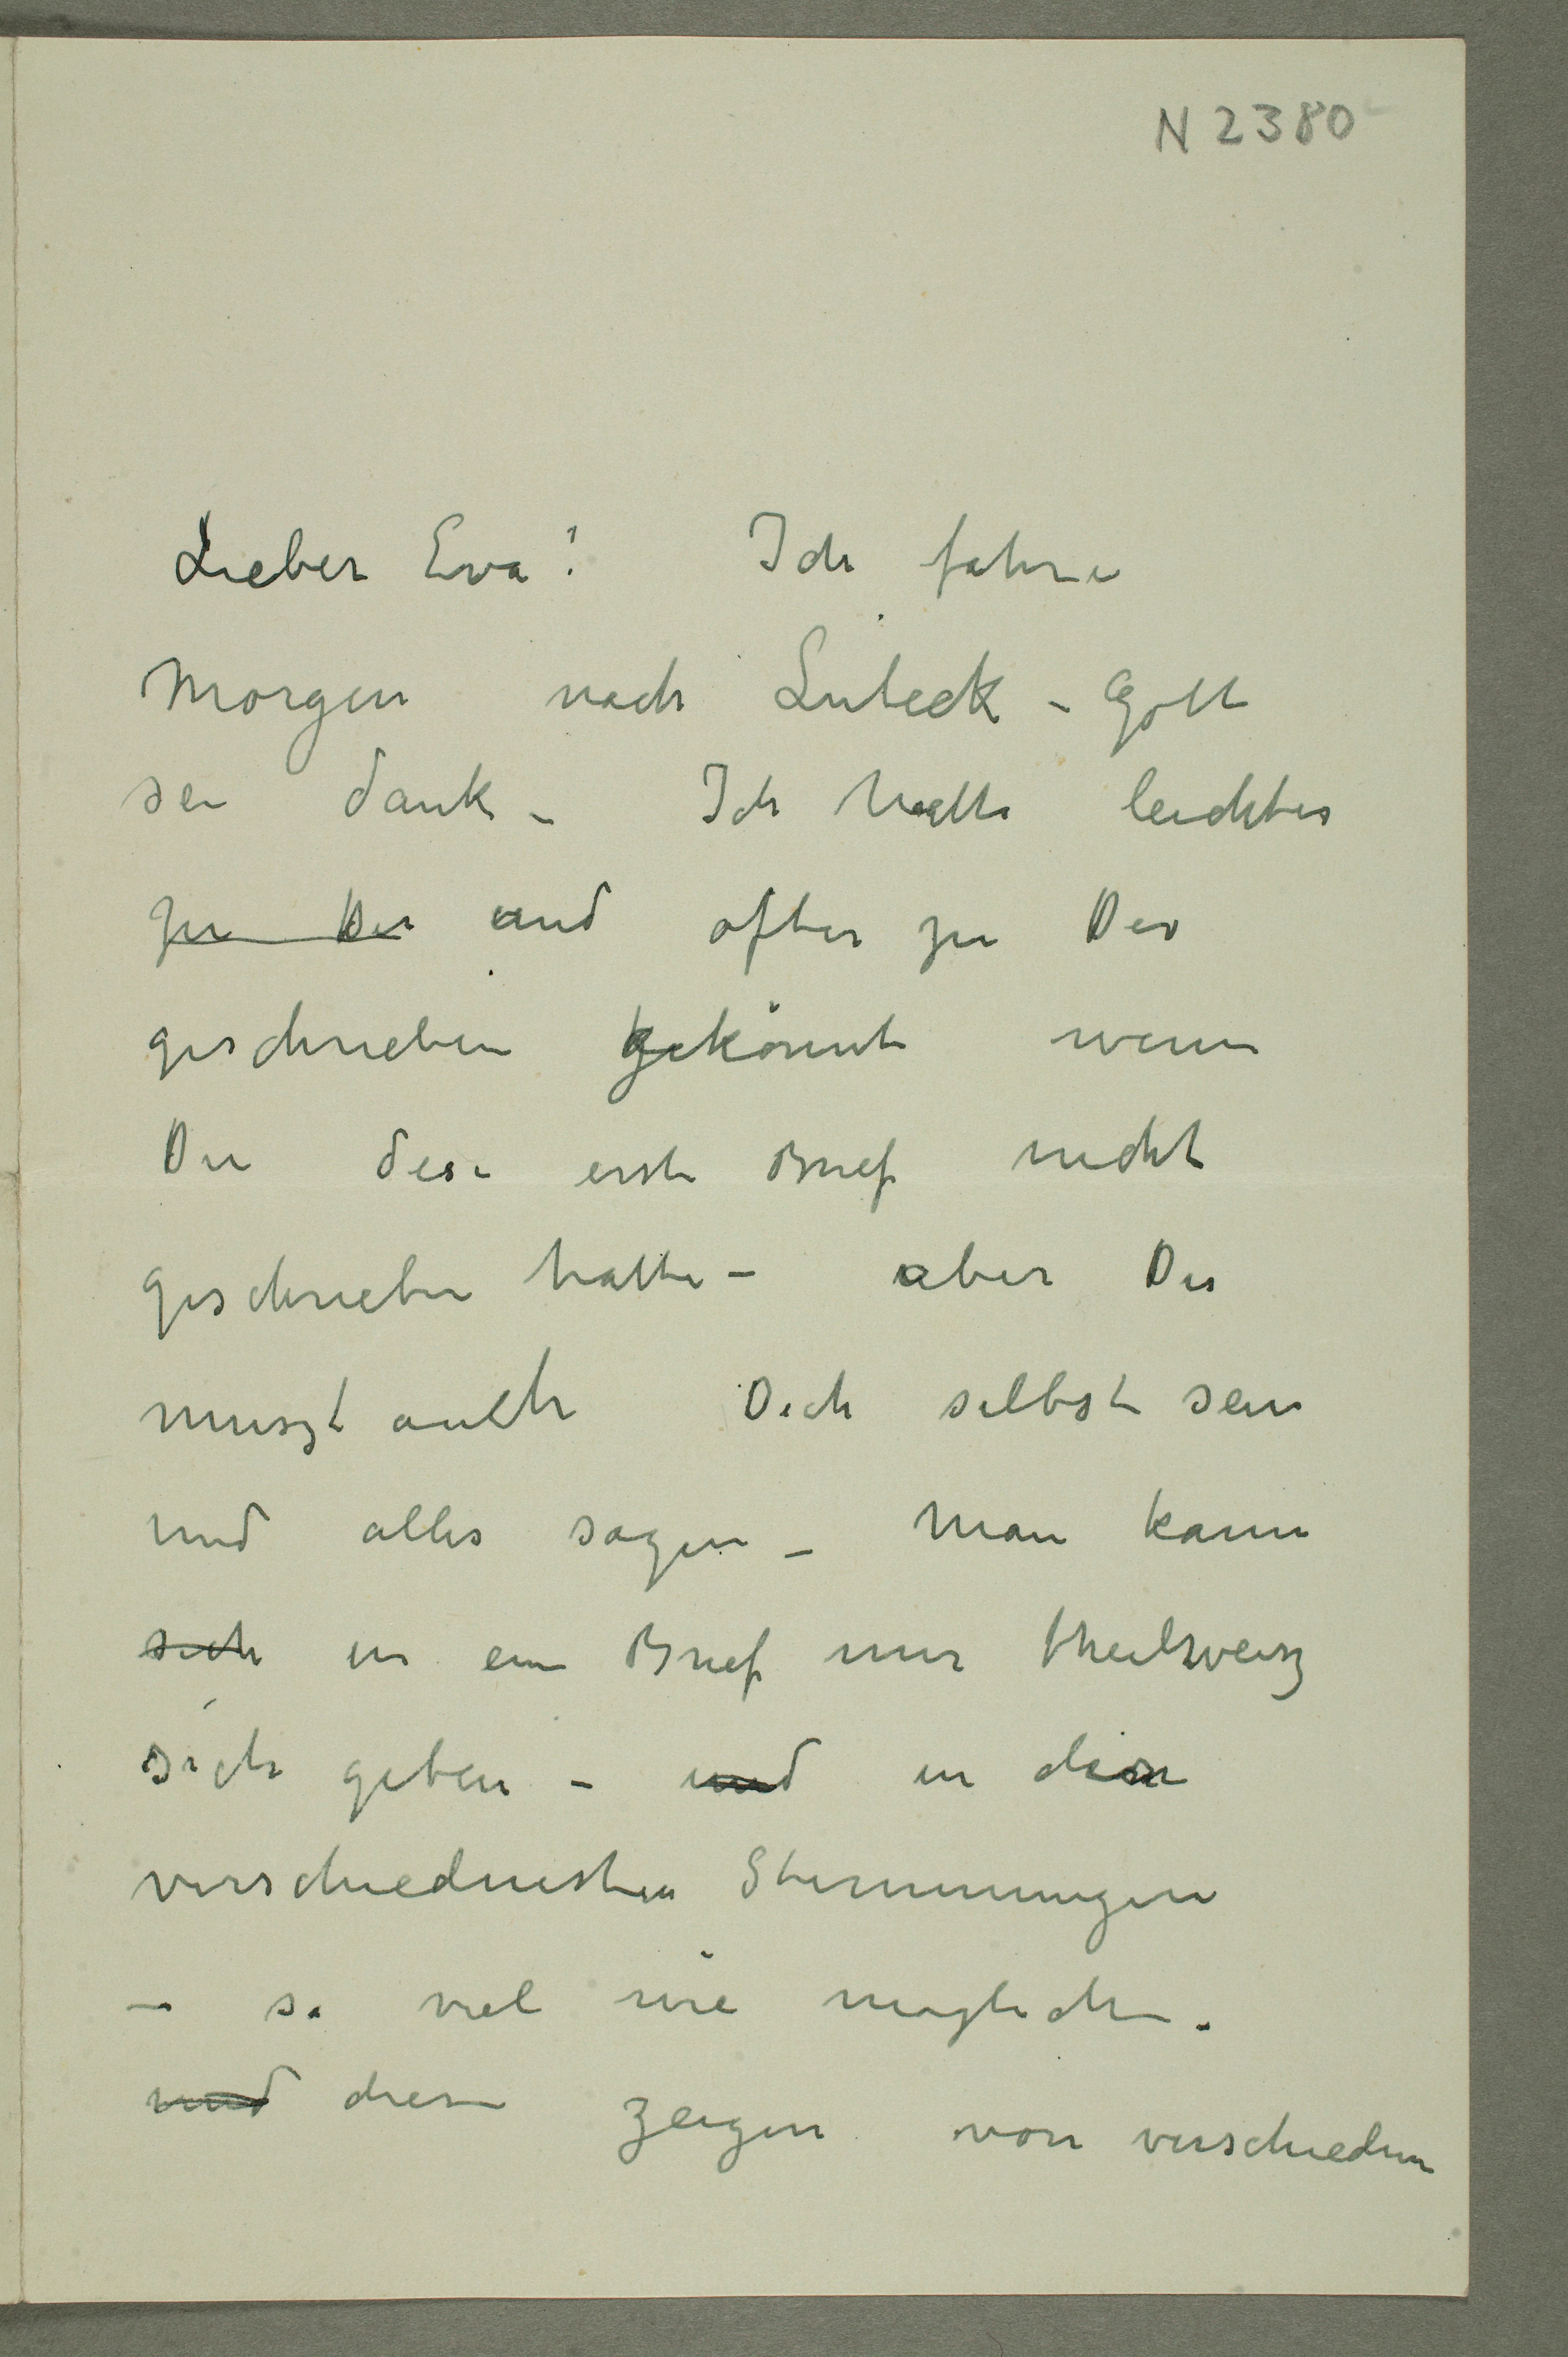 N 2380
Lieber Eva! Ich fahre
Morgen nach Lübeck – Gott
sei dank – Ich hatte leichter
zu Dir und ofter zu Dir
geschrieben gekönnt wenn
Du dese erste Brief nicht
geschrieben hatte – aber Du
muszt auch Dich selbst sein
und alles sagen – Man kann
sich in ein Brief nur theilweisz
sich geben – und in den
verschiednesten Stimmungen
– so viel wie moglich.
und diese zeigen von verschiednen